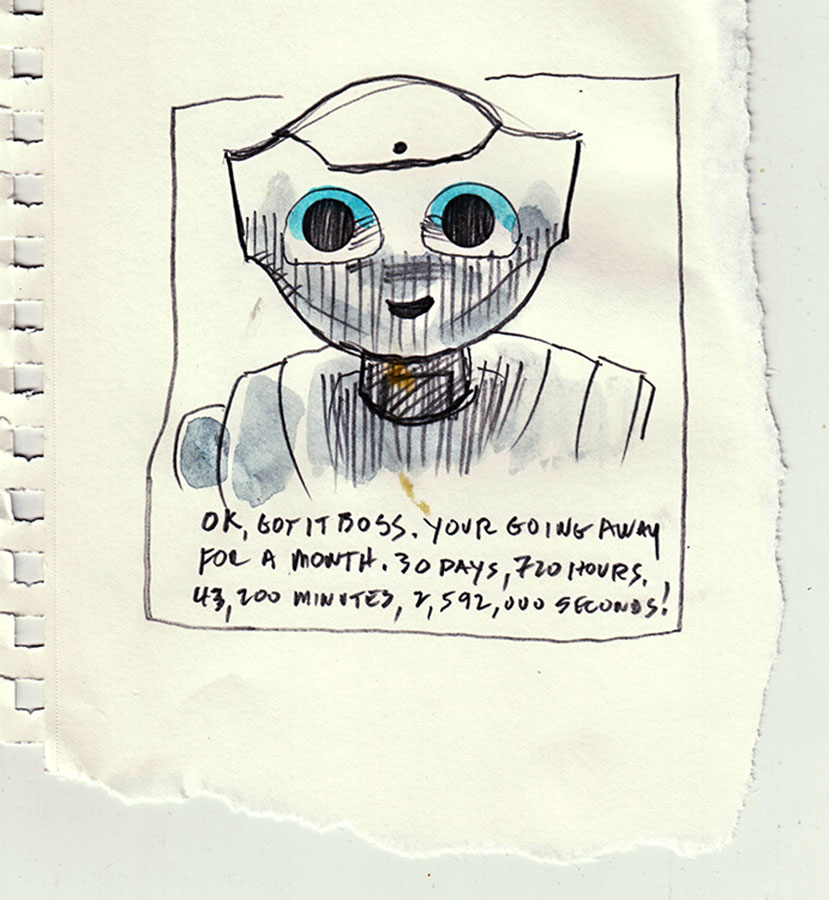 OK, GOT IT BOSS. YOUR GOING AWAY
FOR A MONTH. 30 DAYS, 720 HOURS.
43,200 MINUTES, 2,592,000 SECONDS!